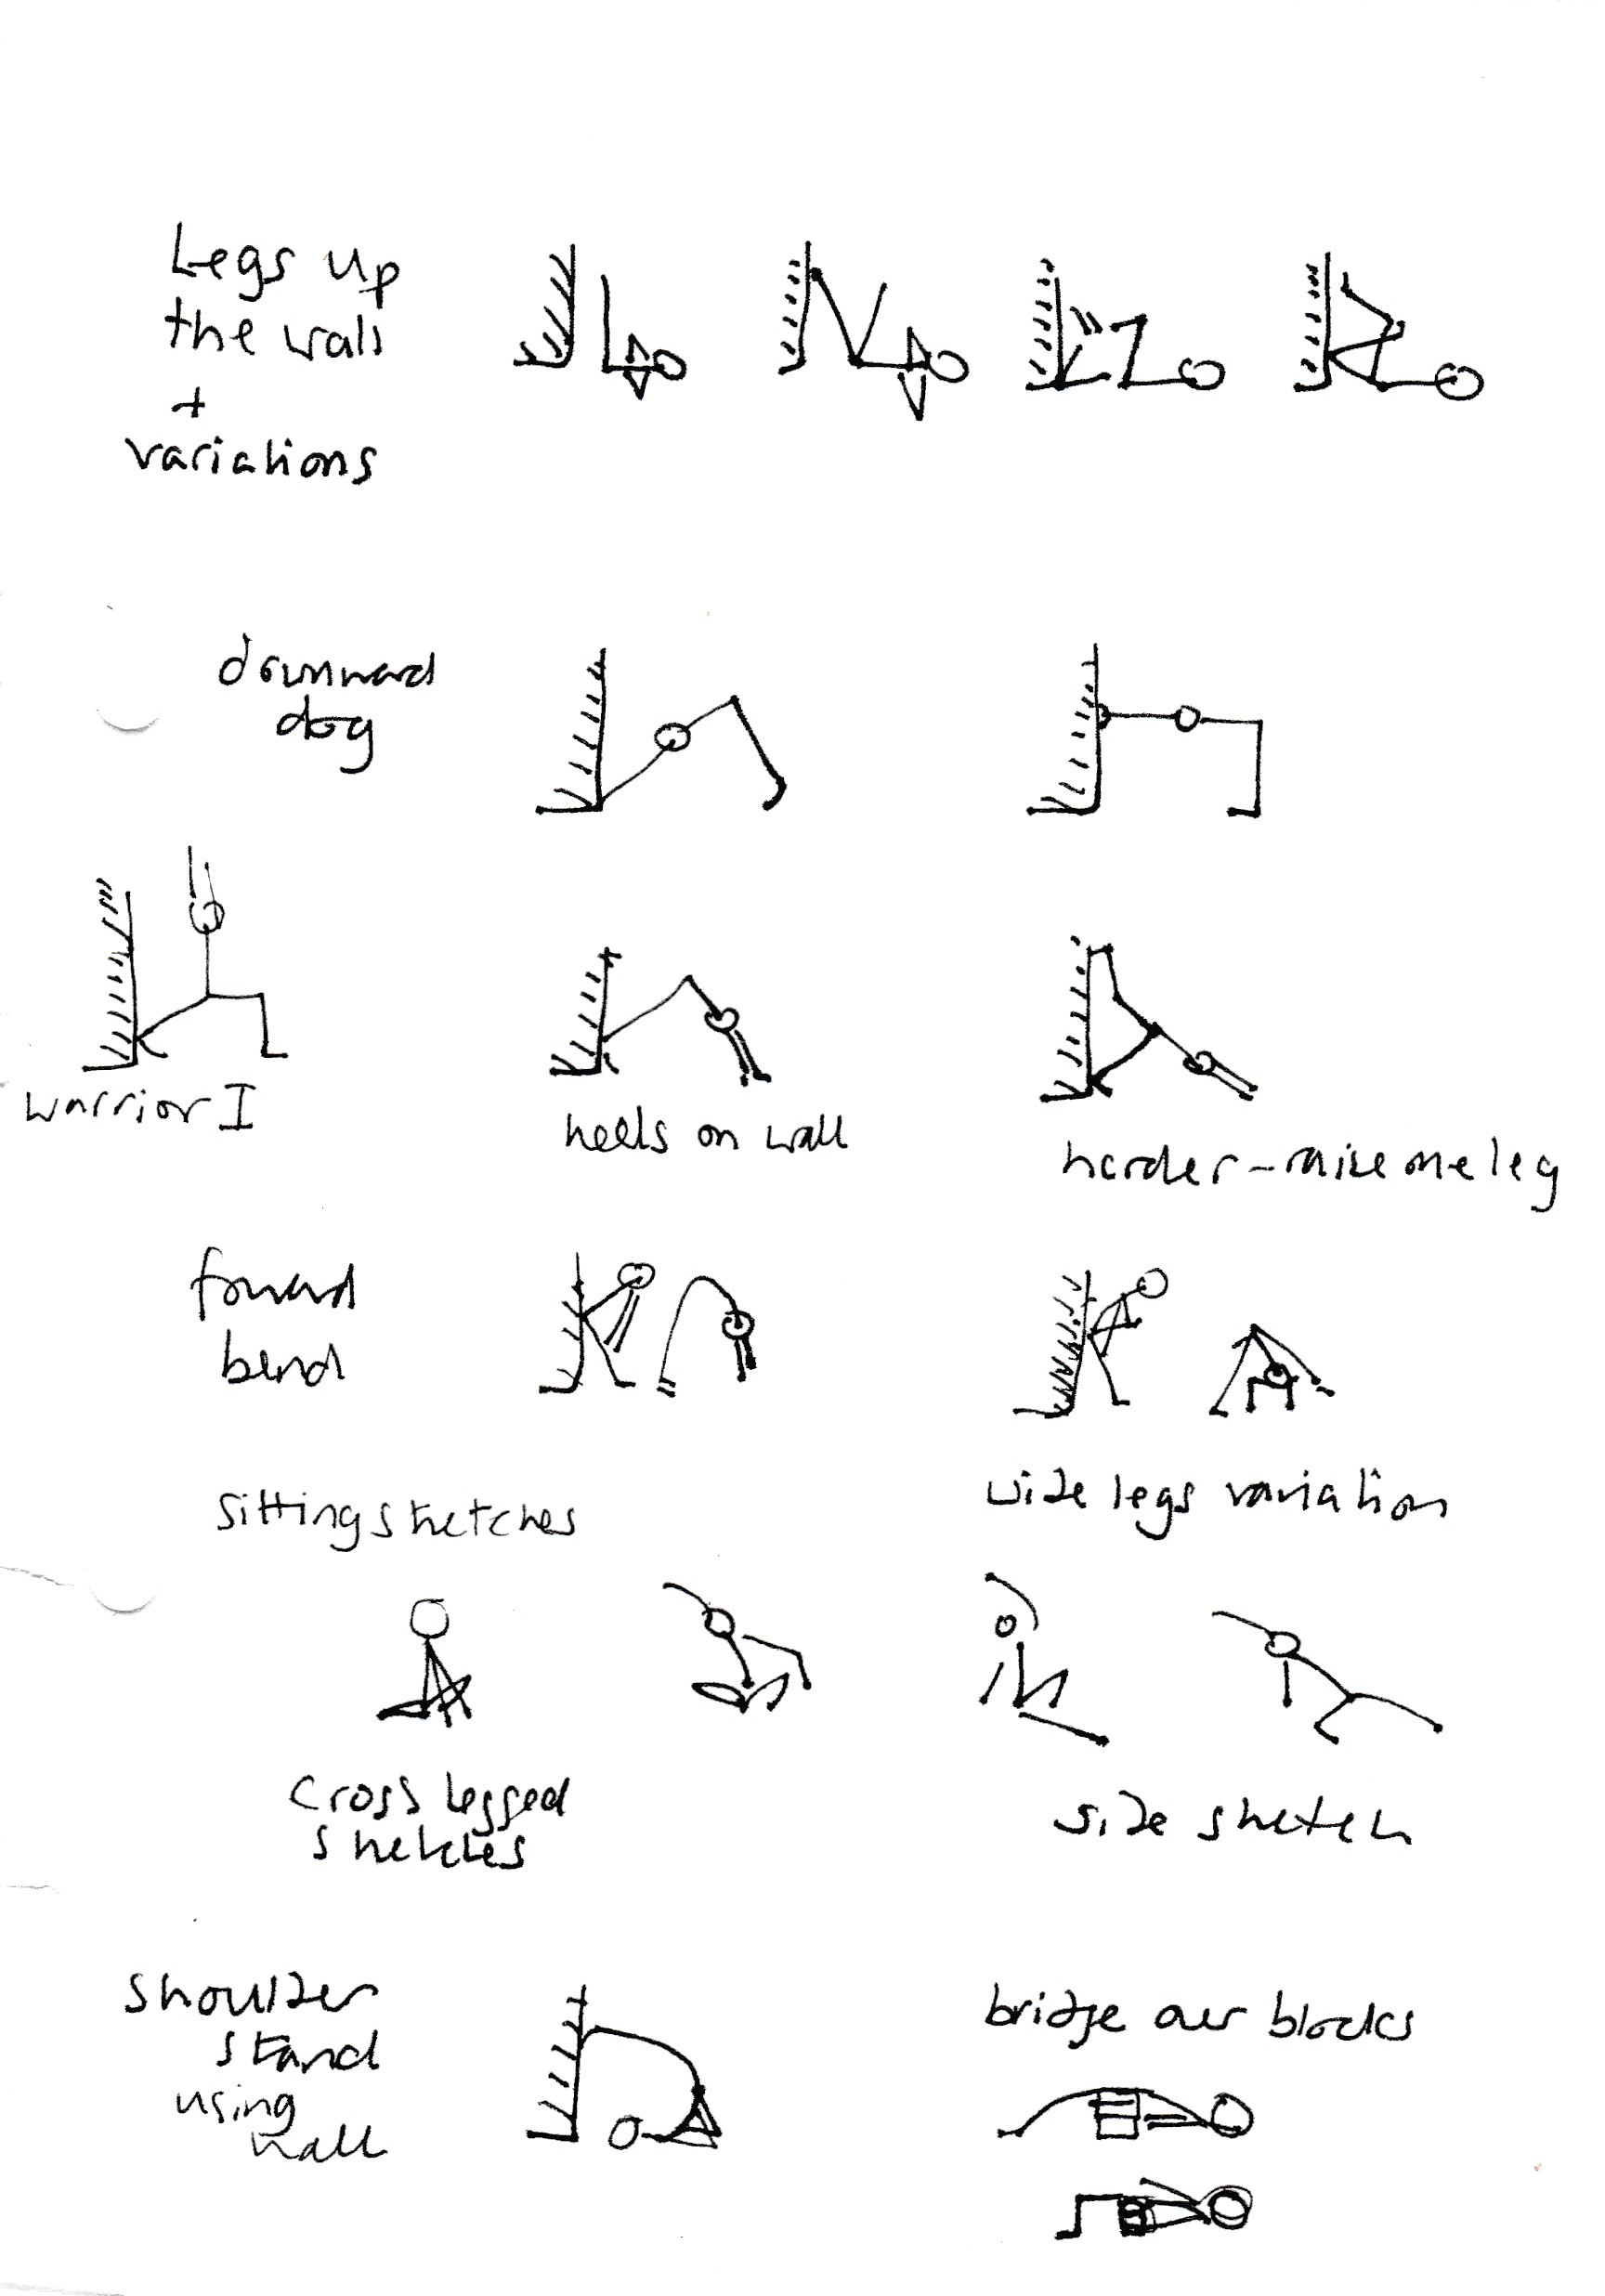 Legs up
the wall
+
variations
downward
dog
warrior I
heels on wall
harder - raise one leg
forward
bend
wide legs variation
Sitting stretches
cross legged
stretches
side stretch
Shoulder
stand
using
wall
bridge over blocks